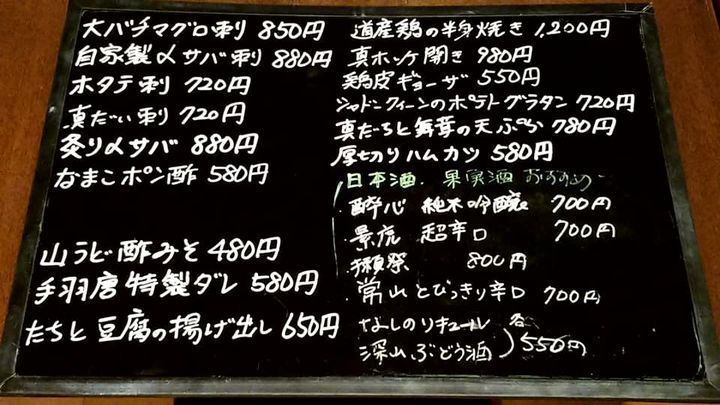 大バチマグロ刺 850円
自家製〆サバ刺 880円
ホタテ刺 720円
真だい刺 720円
炙り〆サバ 880円
なまこポン酢 580円
山うど酢みそ 480円
手羽唐特製ダレ 580円
たちと豆腐の揚げ出し 650円
道産鶏の半身焼き 1,200円
真ホッケ開き 980円
鶏皮ギョーザ 550円
シャドークィーンのポテトグラタン 720円
真だちと舞茸の天ぷら 780円
厚切りハムカツ 580円
日本酒・果実酒 おすすめ
酔心 純米吟醸 700円
景虎 超辛口 700円
獺祭 800円
常山とびっきり辛口 700円
なしのリキュール 各
深山ぶどう酒 550円